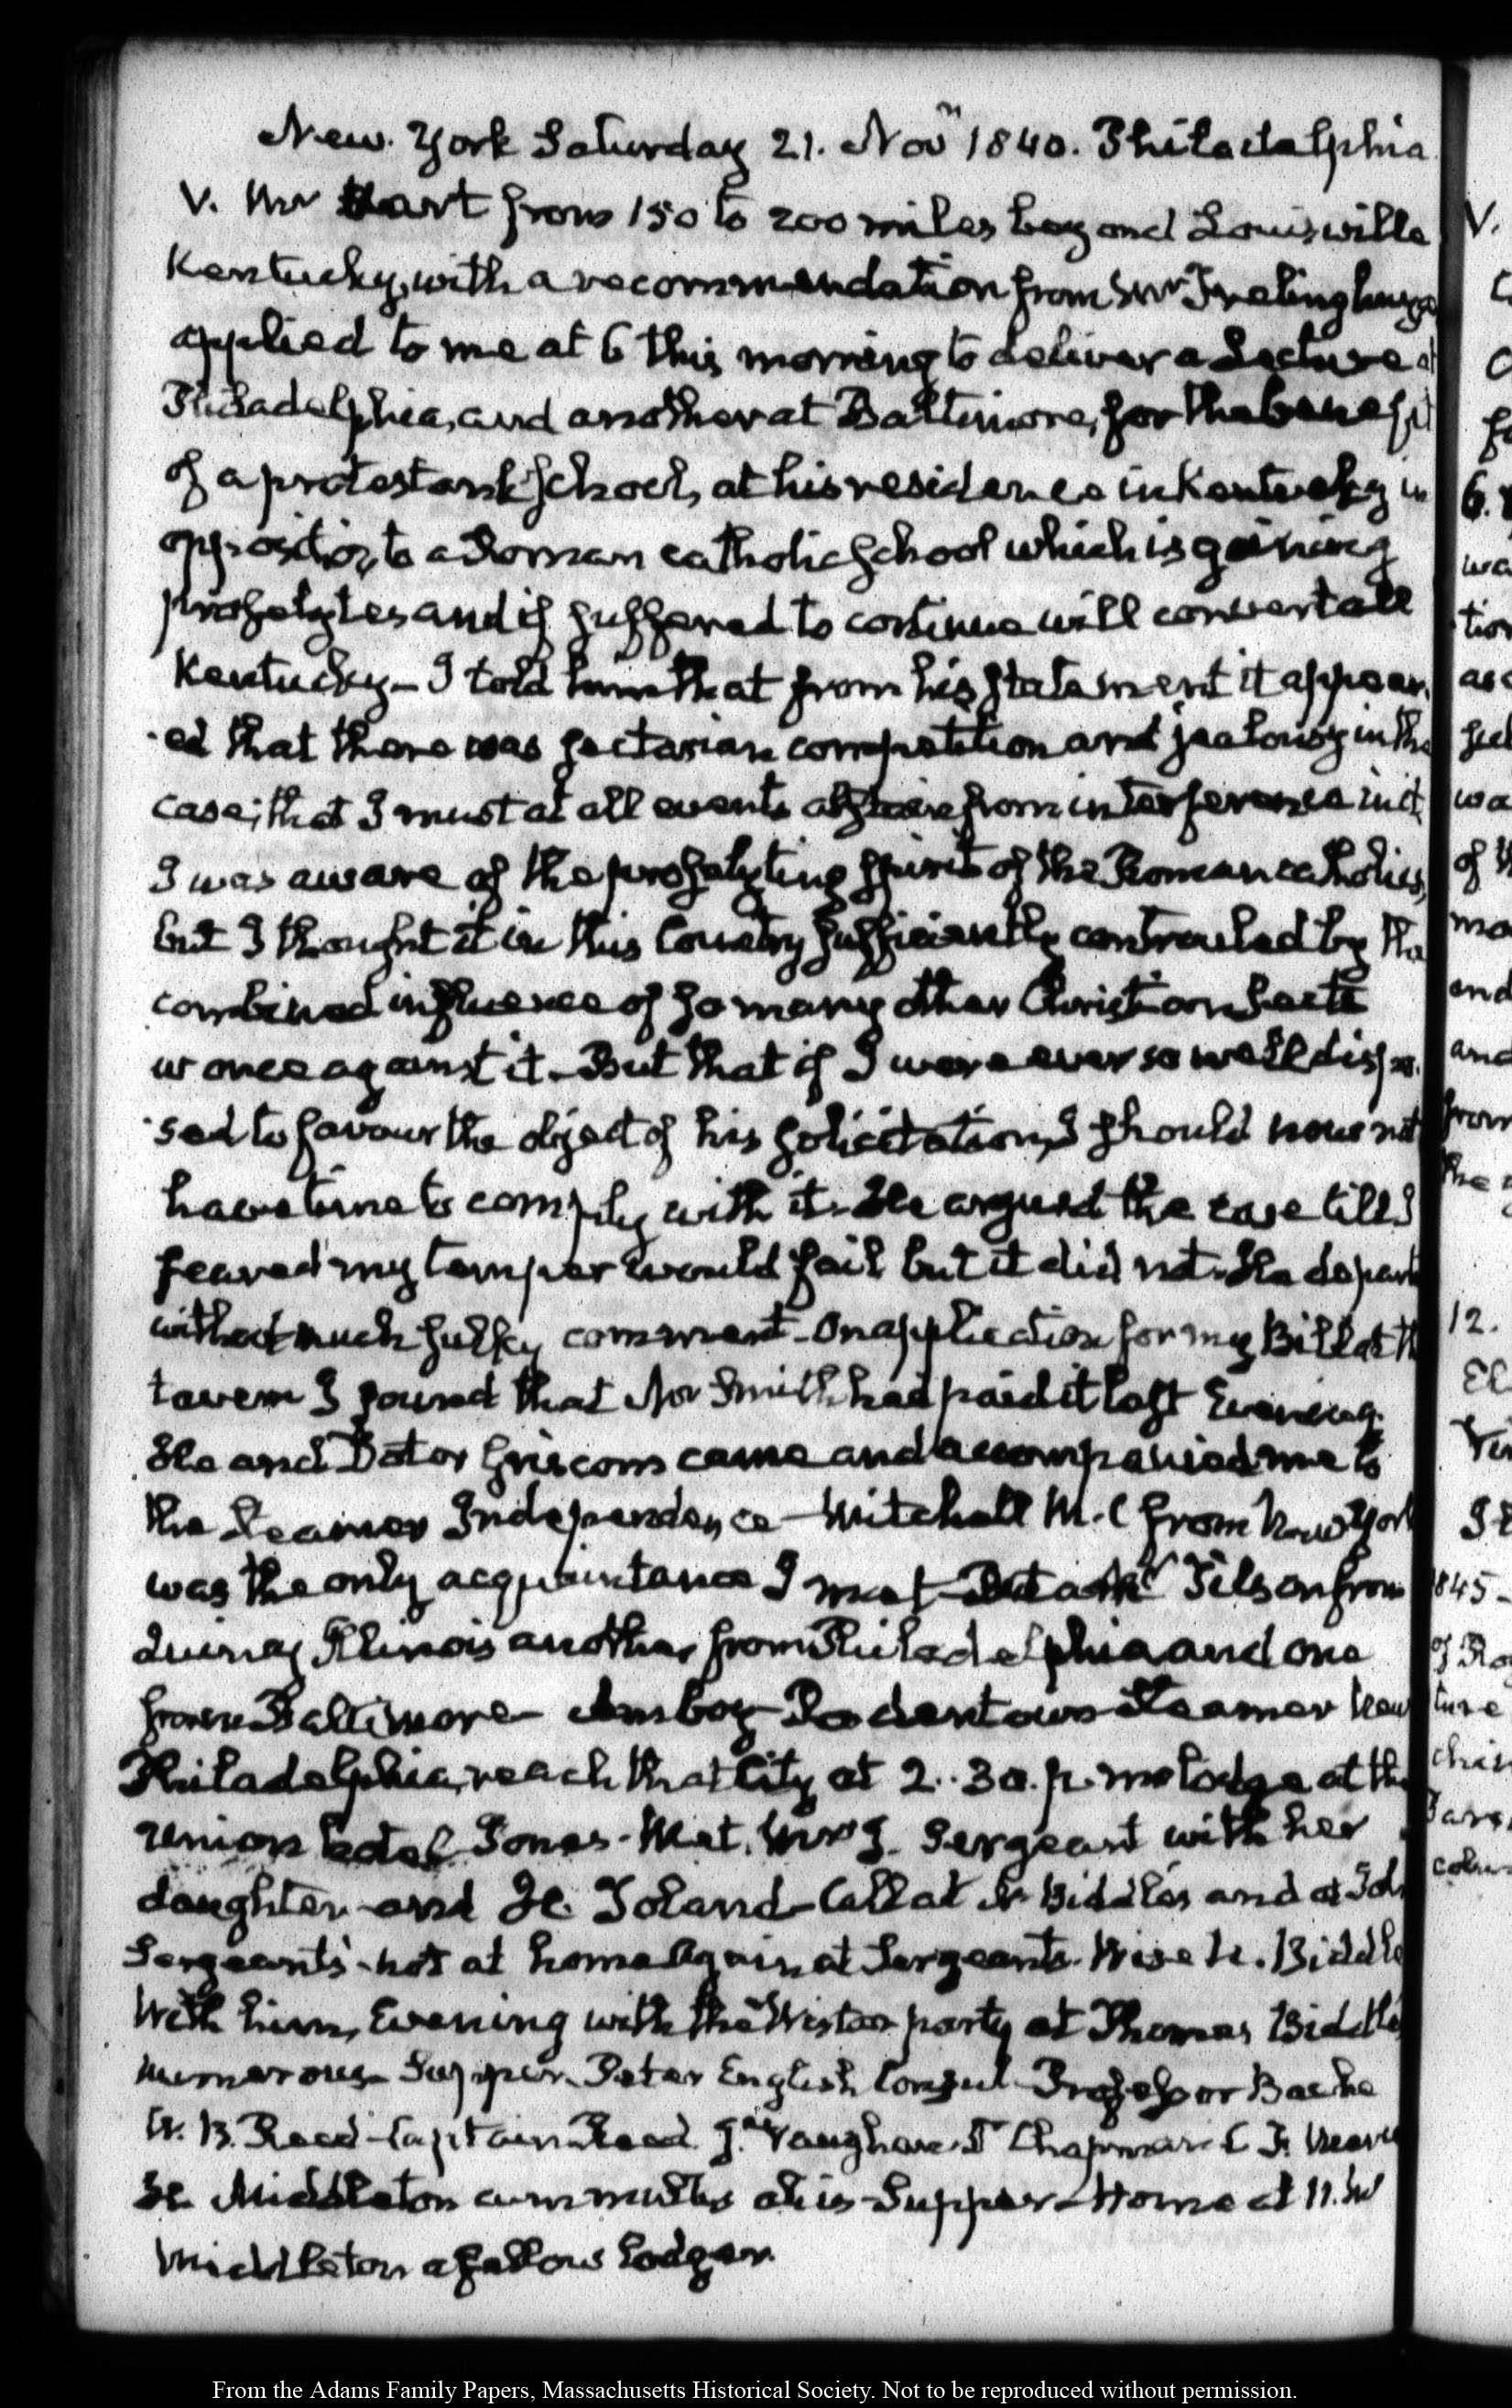 New York Saturday 21. Nov 1840. Philadelphia
V. Mr Hart from 150 to 200 miles beyond Louisville
Kentucky, with a recommendation from Mr Frelinghuys
applied to me at 6 this morning to deliver a Lecture at
Philadelphia, and another at Baltimore, for the benefit
of a protestant School, at his residence in Kentucky in
opposition to a Roman catholic School which is gaining
proselytes and if suffered to continue will convert all
Kentucky – I told him that from his statement it appear
ed that there was sectarian competition and jealousy in the
case; that I must at all events abstain from interference in it.
I was aware of the proselyting spirit of the Roman catholics,
but I thought it in this Country sufficiently controuled by the
combined influence of so many other Christian Sects
against it – But that if I were ever so well dispo
sed to favour the object of his solicitation, I should now not
have time to comply with it. He argued the case till I
feared my temper would fail but it did not. He depart
without much sulky comment – On application for my Bill at th
tavern I found that Mr Smith had paid it last Evening.
He and Doctor Griscom came and accompanied me to
the Steamer Independence – Mitchell M.C from New York
was the only acquaintance I met – But a Mr Tilson from
Quincy Illinois another from Philadelphia and one
from Baltimore – Amboy – Bordentown – Steamer New
Philadelphia, reach that City at 2..30. p.m. lodge at the
Union hotel Jones. Met. Mrs J. Sergeant with her
daughter – and H. Toland – Call at N. Biddle's and at Joh
Sergeants' – not at home Again at Sergeants. Wise N. Biddle
With him, Evening with the Wistar party at Thomas Biddle
numerous – Supper. Peter English Consul – Professor Bache
W. B. Reed – Captain Read. Jn Vaughan. D Chapman
H. Middleton at his Supper – Home at 11. H
Middleton a fellow Lodger.
V.
6.
wa
tion
as
wa
of th
mo
end
and
from
the
12.
845 –
of Ro
ture
From the Adams Family Papers, Massachusetts Historical Society. Not to be reproduced without permission.